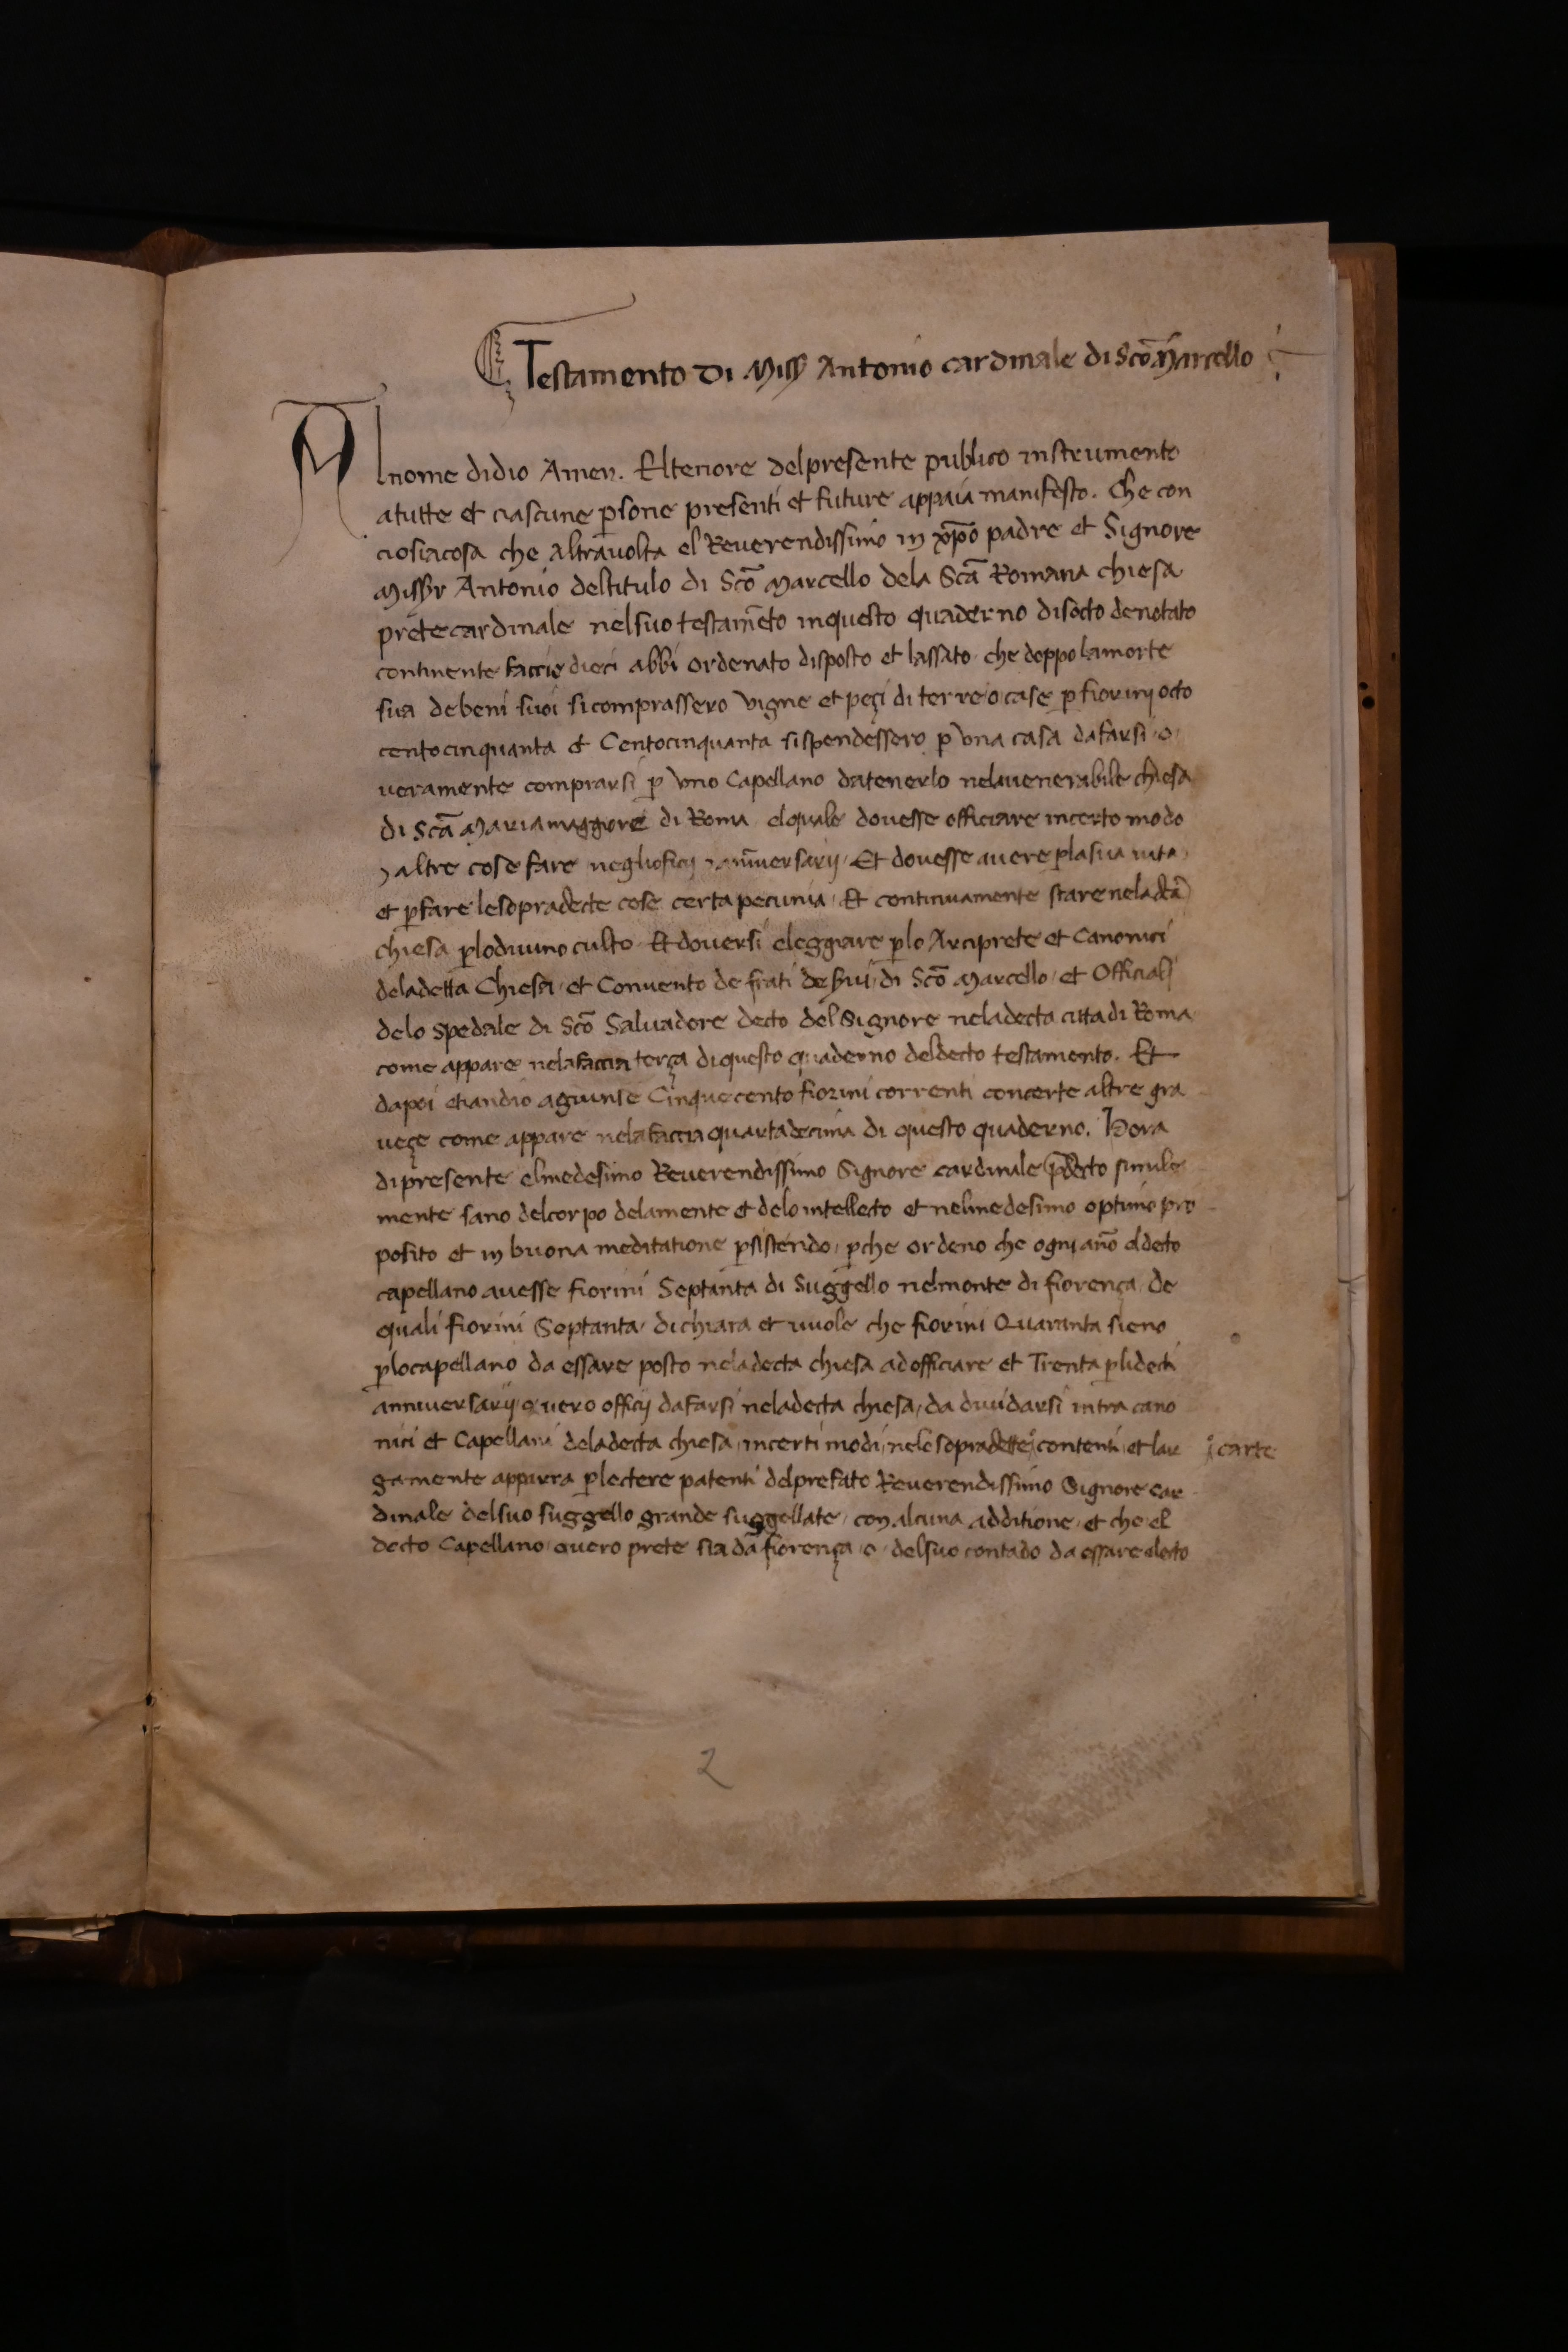 Testamento Di Miss Antonio cardinale di Scō Marcello
Al nome didio Amen. Eltenore delpresente publico instrumento
atutte et ciascune ꝑsone presenti et future appaia manifesto. Che con
ciosiacosa che Altravolta el Reverendissimo in xp̄o padre et Signore
Missyr Antonio deltitulo di Scō Marcello dela Scā Romana chiesa
prete cardinale nelsuo testamēto inquesto quaderno disocto denotato
continente faccie dieci abbi ordenato disposto et lassato che doppo lamorte
sua debeni suoi sicomprassero vigne et peçi di terre o case ꝑ fiorini octo
centocinquanta et Centocinquanta sispendessero ꝑ vna casa dafarsi o
veramente comprarsi ꝑ vno Capellano datenerlo nelavenerabile chiesa
di Scā Maria maggiore di Roma elquale dovesse officiare incerto modo
⁊ altre cose fare negliofficij ⁊ aniversarij. Et dovesse avere ꝑlasua vita
et ꝑfare lesopradecte cose certa pecunia. Et continuamente stare neladcā
chiesa ꝑlodivino culto Et doversi eleggiare ꝑlo Arciprete et Canonici
deladetta Chiesa et Convento de frati de syvi di Scō Marcello et Officiali
delo spedale di Scō Salvadore decto del Signore neladecta citta di Roma
come appare nelafaccia terça diquesto quaderno deldecto testamento. Et
dapoi etiandio agiunse Cinquecento fiorini correnti concerte altre gra
veçe come appare nelafaccia quartadecima di questo quaderno. Hora
dipresente elmedesimo Reverendissimo Signore cardinale p̄decto simile
mente sano delcorpo delamente et delo intellecto et nelmedesimo optimo pro
posito et in buona meditatione ꝑsistendo, ꝑche ordeno che ogni anō eldecto
capellano avesse fiorini Septanta di Suggello nelmonte di fiorença, de
quali fiorini Septanta, dichiara et vuole che fiorini Quaranta sieno
ꝑlocapellano da essare posto neladecta chiesa ad officiare et Trenta ꝑlidecti
anniversarij overo officij dafarsi neladecta chiesa, da dividarsi intra cano
nici et Capellani deladecta chiesa, incerti modi, nele sopradette contenti, et lar carte
gamente apparra ꝑlectere patenti delprefato Reverendissimo Signore car
dinale delsuo suggello grande suggellate, con alcuna additione, et che el
decto Capellano overo prete sia da fiorença o delsuo contado da essare electo
2